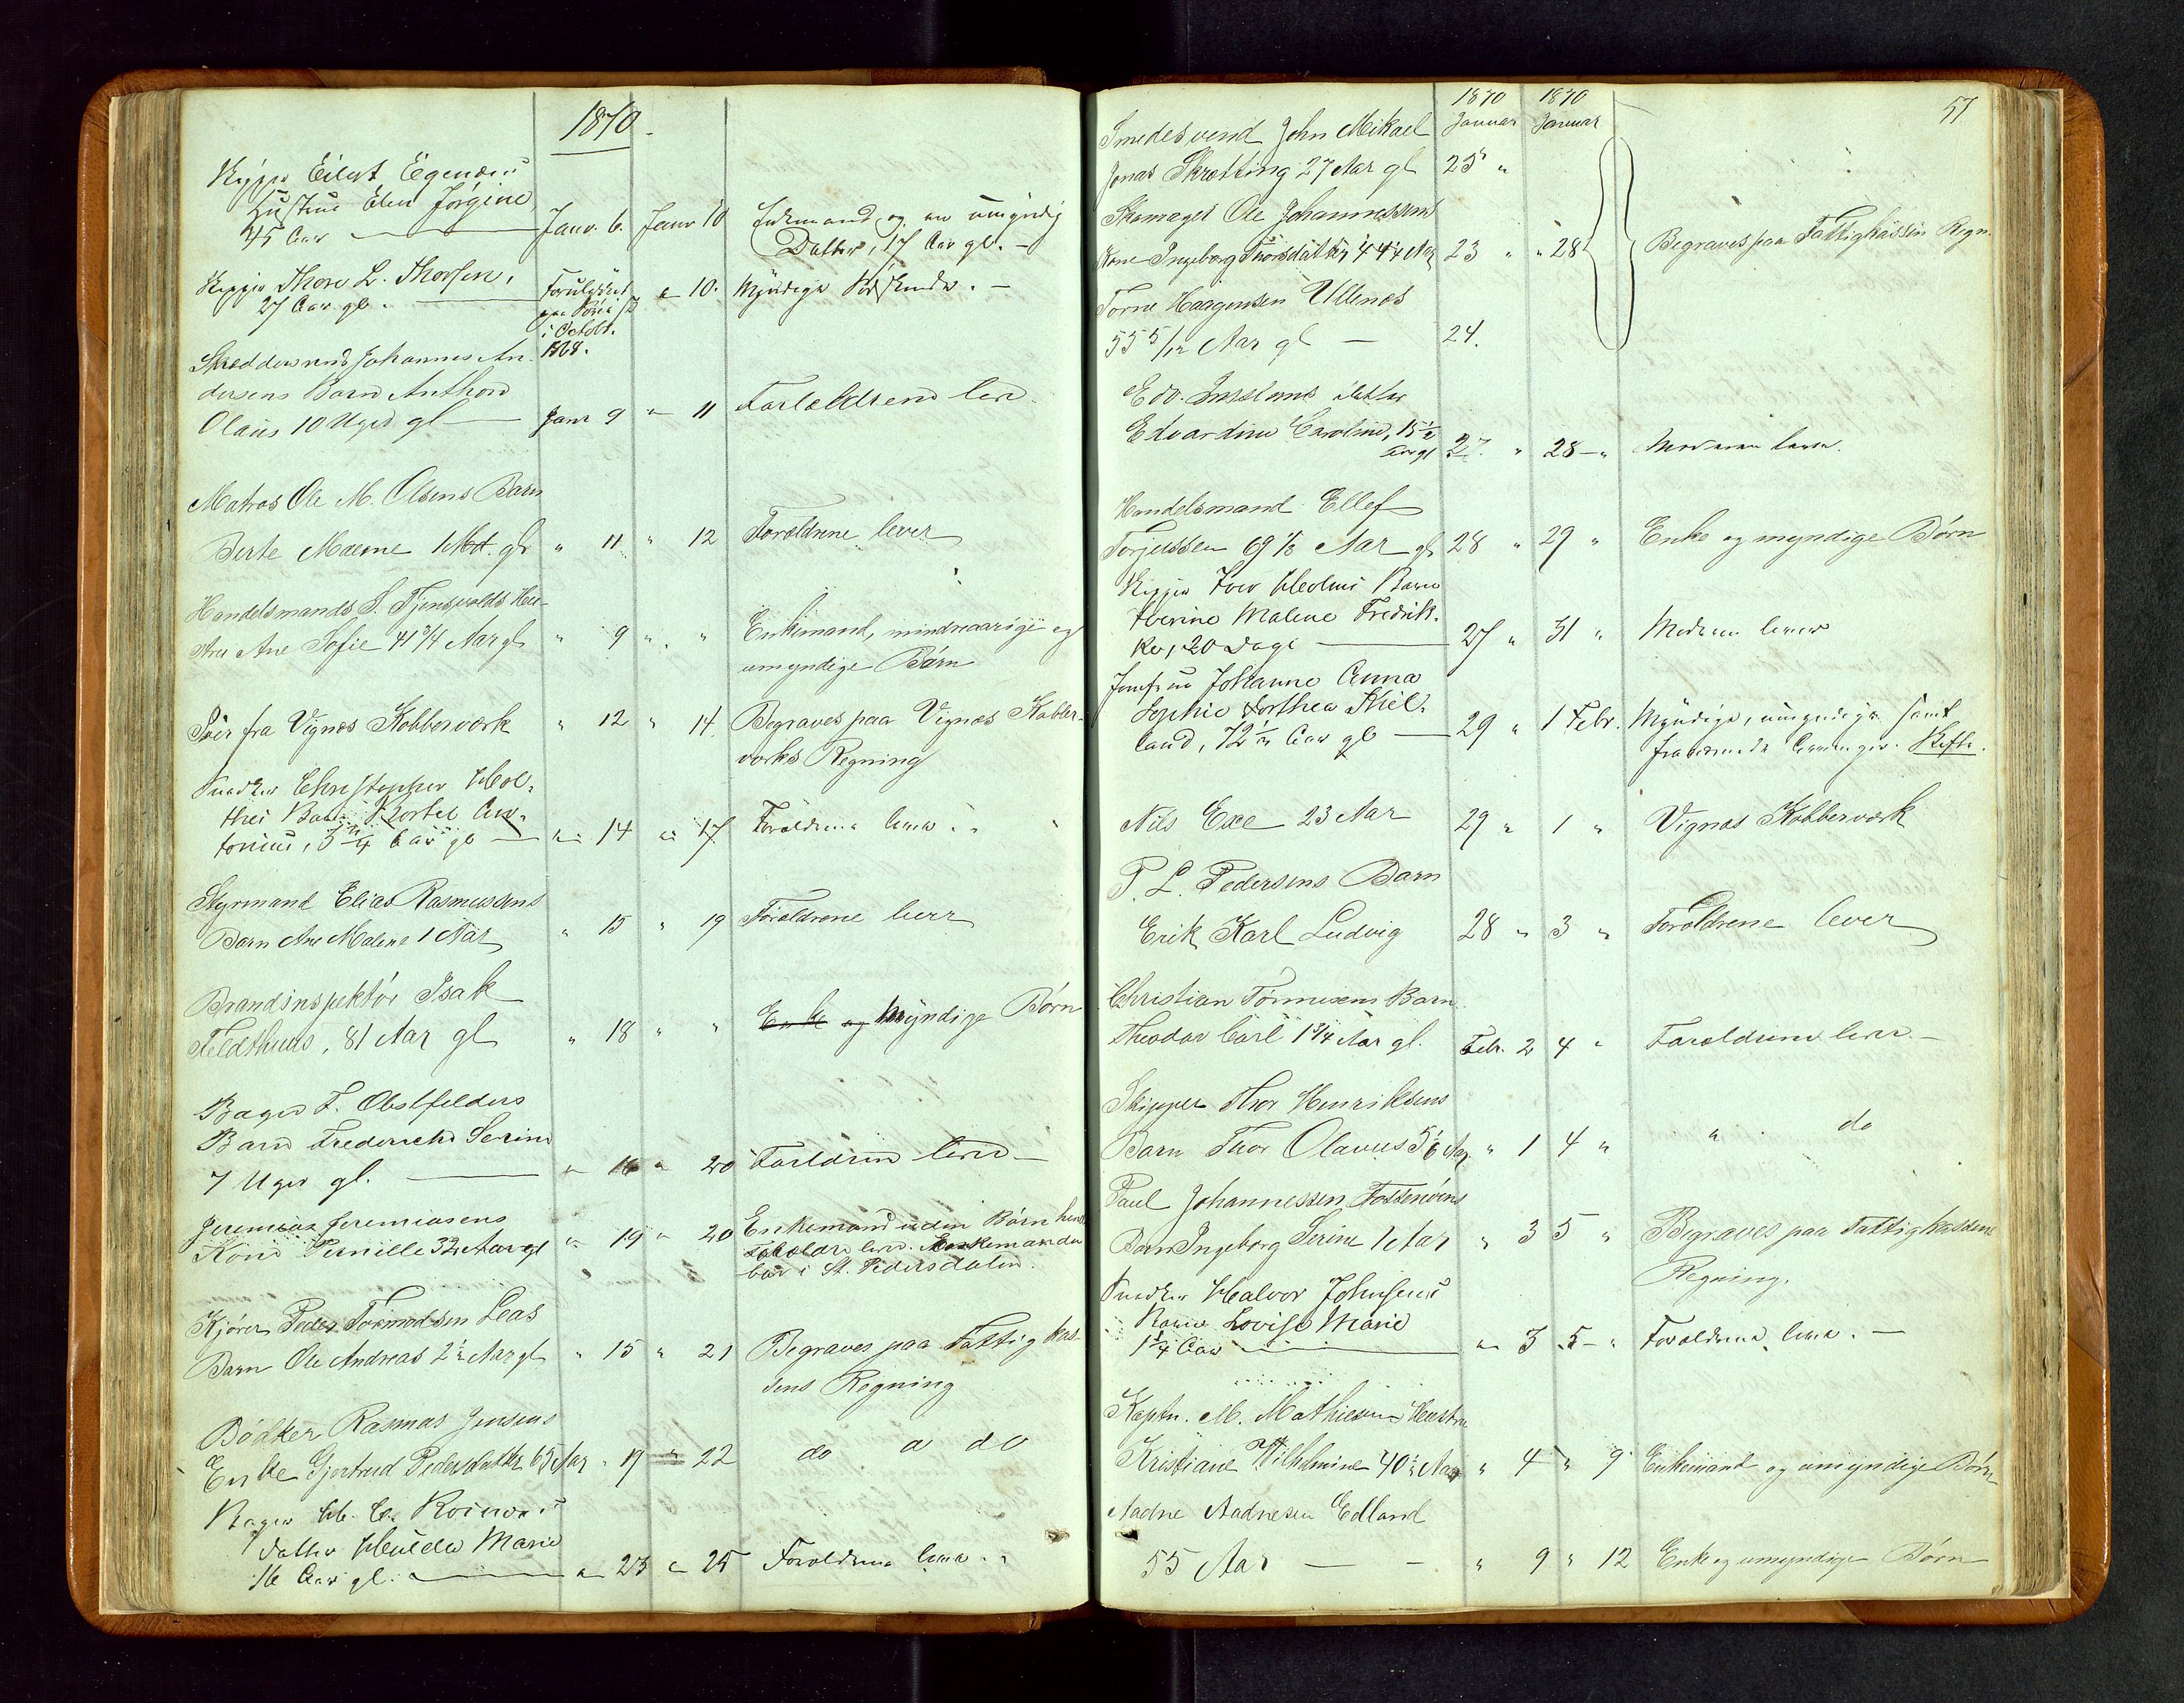 1870.
Skipper Eilert Egenæs's
Hustrue Elen Jørgine
45 Aar — Janr. 6. Janr 10 Enkemand og en umyndig
Datter, 17 Aar gl. —
Skipper Thore L. Thorsen,
27 Aar gl. — Forulykket
paa
i Octobr.
1868. " 10. Myndige Sødskende. —
Skreddersvend Johannes An-
dersens Barn Anthon
Olaus 10 Uger gl — Janr 9 " 11 Forældrene lever
Matros Ole M. Olsens Barn
Berte Malene 1 Md. gl " 11 " 12 Forældrene lever
Handelsmands S. Tjensvolds Hu-
stru Ane Sofie 41 3/4 Aar gl " 9 " " Enkemand, mindreaarige og
umyndige Børn
Siver fra Vignæs Kobberværk " 12 " 14 Begraves paa Vignæs Kobber-
værks Regning
Snedker Christopher Hol-
thes Barn An-
tonius, 3 1/4 Aar gl — " 14 " 17 Forældrene lever
Styrmand Elias Rasmussens
Barn Ane Malene 1 Aar " 15 " 19 Forældrene lever
Brandinspektør Isak
Feldthuus, 81 Aar gl " 18 " " Enke og Myndige Børn
Bager F. Obstfelders
Barn Frederich Serine
7 Uger gl. — " 16 " 20 Forældrene lever —
Jeremias Jeremiasens
Kone Pernille 32 Aar gl " 19 " 20 Enkemand uden Børn hendes
Forældre lever. Enkemanden
bor i St. Pedersdalen.
Kjører Peder Tormodsen Leas
Barn Ole Andreas 2 1/2 Aar gl " 15 " 21 Begraves paa Fattigkas-
sens Regning
Bødker Rasmus Jensens
Enke Gjertrud Pedersdatter 65 Aar " 19 " 22 do a do
Bager
Datter Hulda Marie
16 Aar gl. — " 23 " 25 Forældrene lever.
57
1870 1870
Januar Januar
Smedesvend John Mikael
Jonas Skretting 27 Aar gl 25 "
Skomager Ole Johannessens
Kone Ingeborg Thorsdatter 44 1/4 Aar 23 " " 28 Begraves paa Fattigkassen Regn.
Torne Haagensen Ullenæs
55 5/12 Aar gl — 24.
Edv. datter
Edvardine Caroline, 15 1/2
Aar gl 27. " 28 — " Moderen lever.
Handelsmand Ellef
Torjussen 69 1/3 Aar gl 28 " 29 " Enke og myndige Børn
Skipper Iver Holms Barn
Iverine Malene Fredrik-
ke, 20 Dage — 27 " 31 " Moderen lever
Jomfrue Johanne Anna
Sophie Dorthea Kiel-
land, 72 1/2 Aar gl — 29 " 1 Febr. Myndige, umyndige samt
fraværende Arvinger. Skifte.
Nils Exe 23 Aar 29 " 1 " Vignæs Kobberværk
P. L. Pedersens Barn
Erik Karl Ludvig 28 " 3 " Forældrene lever
Christian Tønnesens Barn
Theodor Carl 1 3/4 Aar gl. Febr. 2 4 " Forældrene lever. —
Skipper Thor Henriksens
Barn Thor Olavus 5/6 Aar " 1 4 " " do
Paul Johannessen Fossenøens
Barn Ingeborg Serine 1 Aar " 3 5 " Begraves paa Fattigkassens
Regning.
Snedker Halvor Johnsens
Barn Lovise Marie
1 1/4 Aar — " 3 5 — " Forældrene lever. —
Kaptn. M. Mathiesens Hustru
Kristiane Wilhelmine 40 1/2 Aar " 4 " 9 Enkemand og umyndige Børn
Aadne Aadnesen Edland
55 Aar — — " 9 " 12 Enke og umyndige Børn